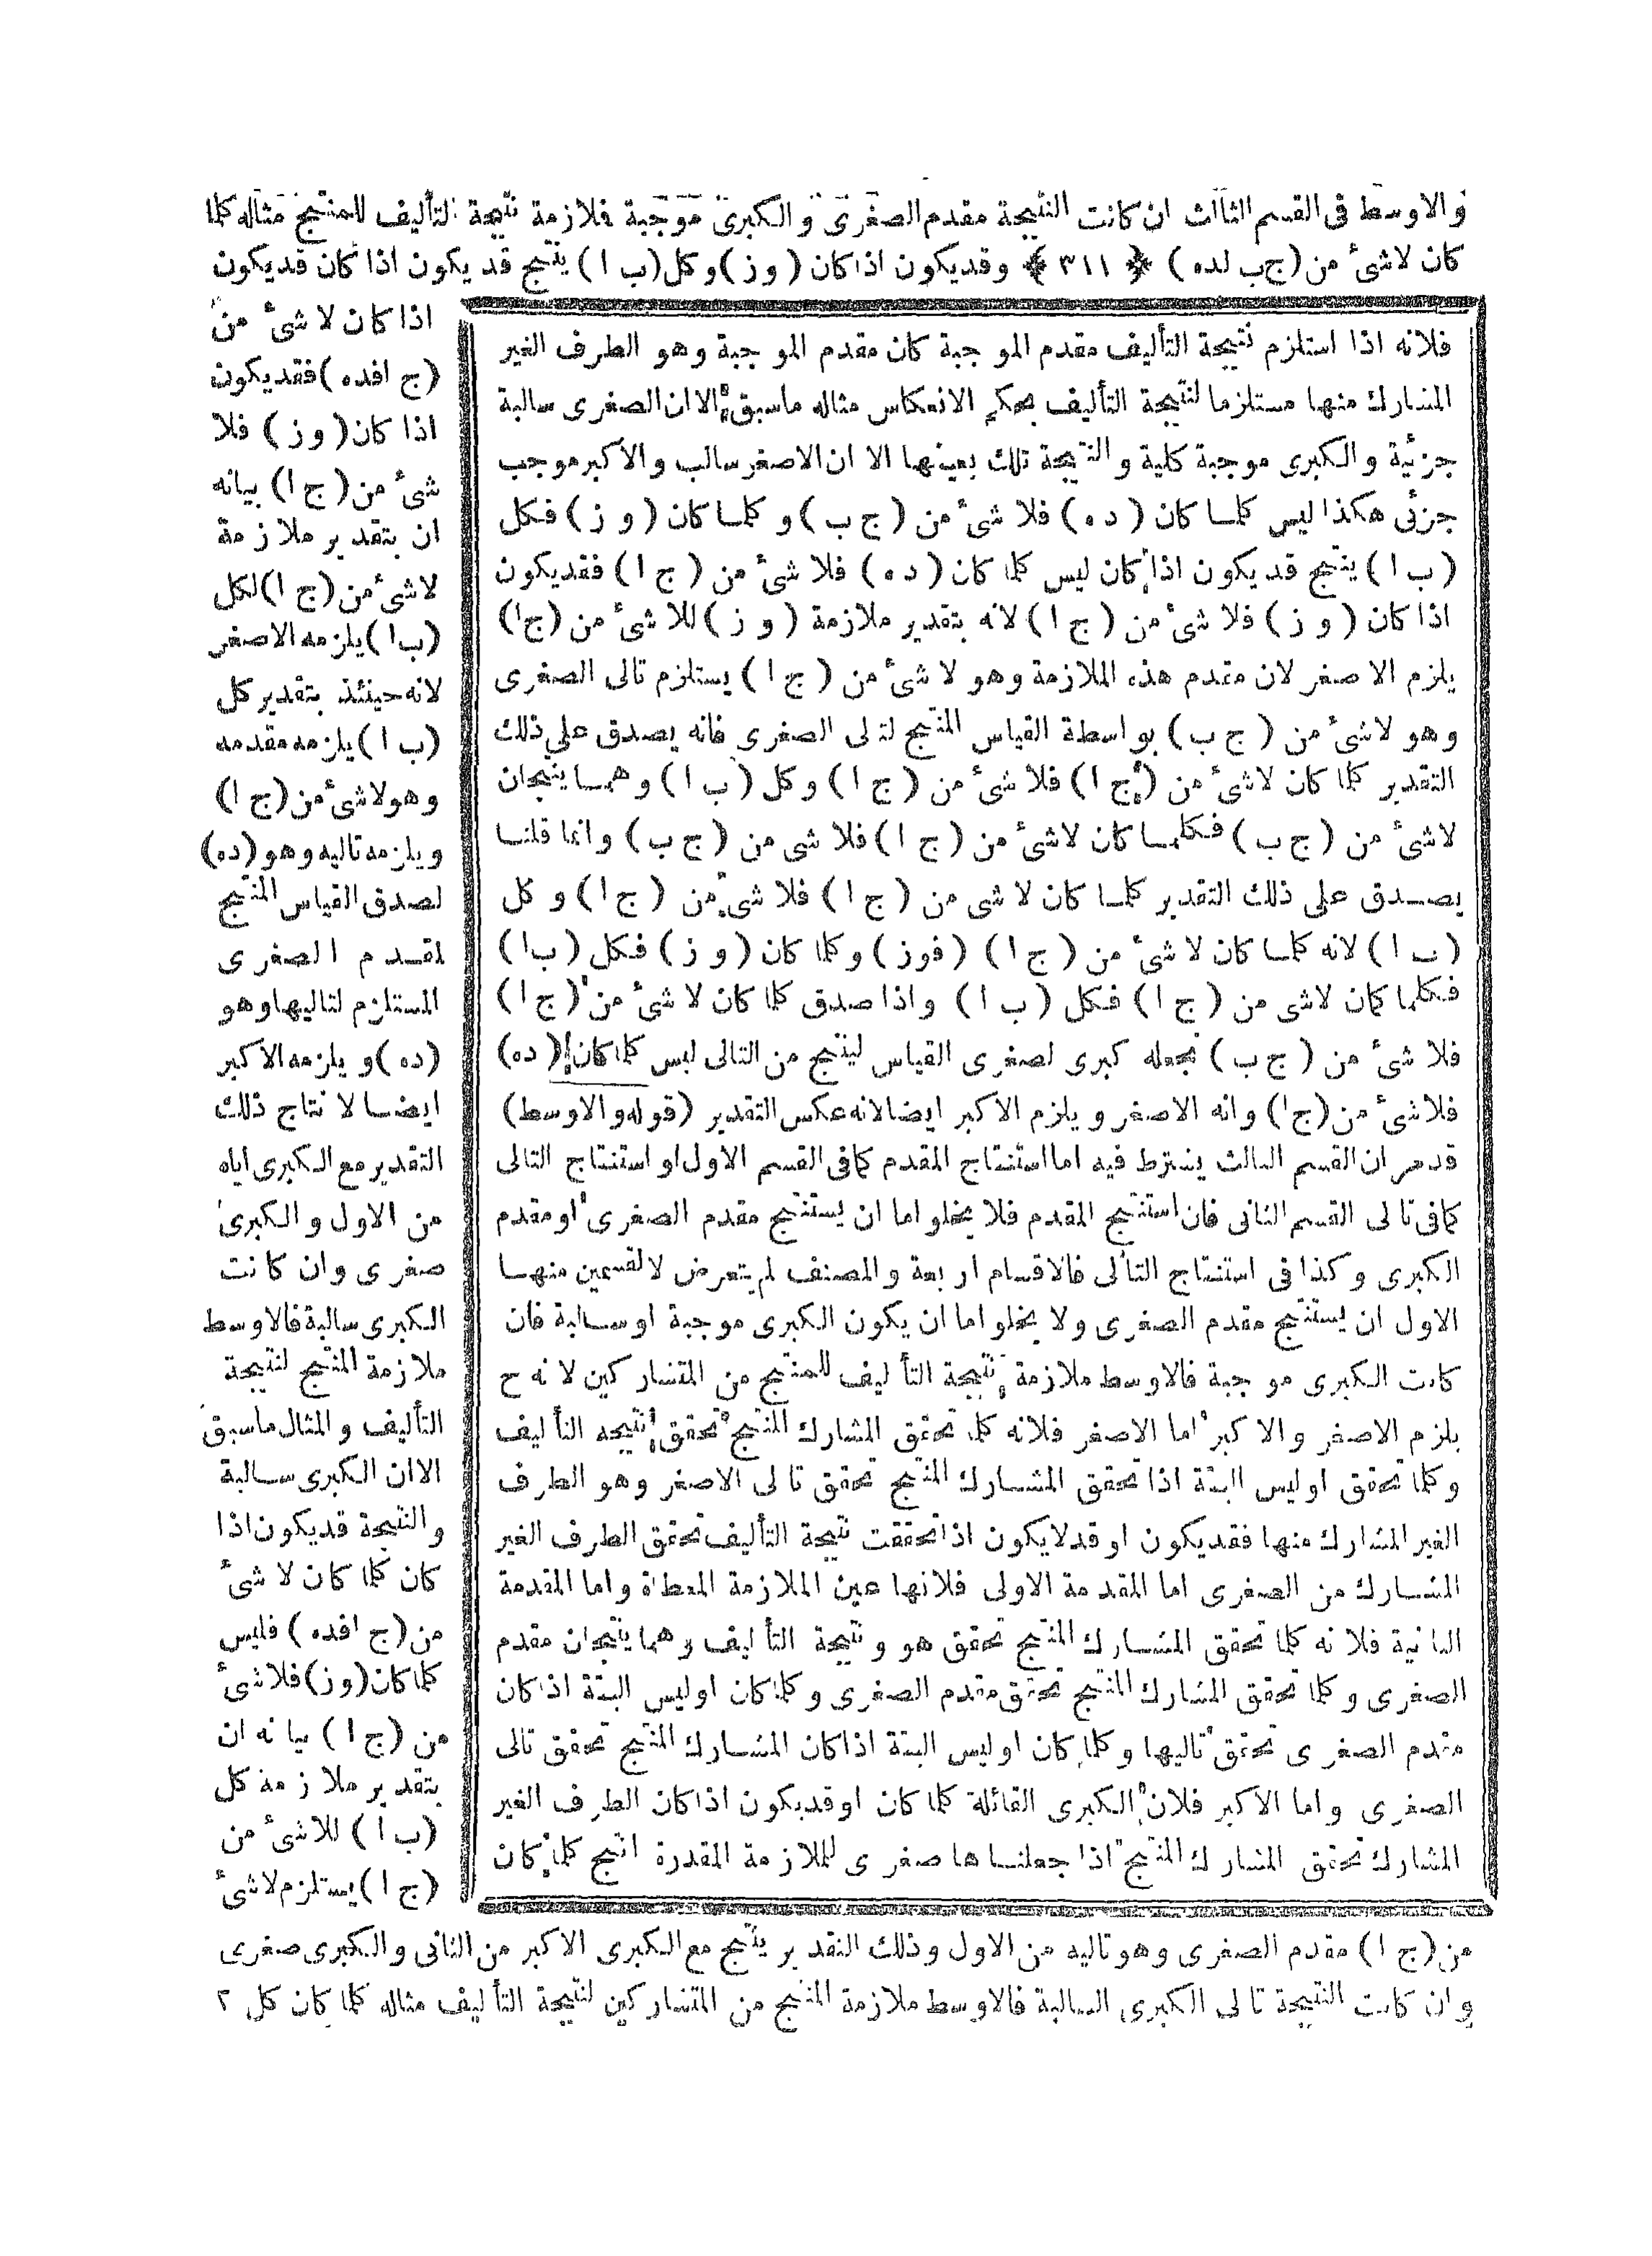 والاوسط فى القسم الثالث ان كانت النتيجة مقدم الصغرى والكبرى موجبة فلازمة نتيجة التأليف للمنتج مثاله كلما
كان لاشئ من (ج ب لده) ﴿ ٣١١ ﴾ وقديكون اذاكان (وز) وكل (ب ا) ينتج قد يكون اذا كان قديكون
اذا كان لا شئ من
(ج ا فده) فقديكون
اذا كان (وز) فلا
شئ من (ج ا) بيانه
ان بتقدير ملازمة
لاشئ من (ج ا) لكل
(ب ا) يلزمه الاصغر
لانه حينئذ بتقدير كل
(ب ا) يلزمه مقدمه
وهو لاشئ من (ج ا)
ويلزمه تاليه وهو (ده)
لصدق القياس المنتج
لمقدم الصغرى
المستلزم لتاليها وهو
(ده) ويلزمه الاكبر
ايضا لا نتاج ذلك
التقدير مع الكبرى اياه
من الاول والكبرى
صغرى وان كانت
الكبرى سالبة فالاوسط
ملازمة المنتج لنتيجة
التأليف والمثال ماسبق
الاان الكبرى سالبة
والنتيجة قديكون اذا
كان كلما كان لا شئ
من (ج ا فده) فليس
كلما كان (وز) فلا شئ
من (ج ا) بيانه ان
بتقدير ملازمة كل
(ب ا) للاشئ من
(ج ا) يستلزم لاشئ
من (ج ا) مقدم الصغرى وهو تاليه من الاول وذلك التقدير ينتج مع الكبرى الاكبر من الثانى والكبرى صغرى
وان كانت النتيجة تالى الكبرى السالبة فالاوسط ملازمة المنتج من المتشاركين لنتيجة التأليف مثاله كلما كان كل ٢
فلانه اذا استلزم نتيجة التأليف مقدم الموجبة كان مقدم الموجبة وهو الطرف الغير
المشارك منها مستلزما لنتيجة التأليف بحكم الانعكاس مثاله ماسبق الا ان الصغرى سالبة
جزئية والكبرى موجبة كلية والنتيجة تلك بعينها الا ان الاصغر سالب والاكبر موجب
جزئى هكذا ليس كلما كان (ده) فلا شئ من (ج ب) وكلما كان (وز) فكل
(ب ا) ينتج قد يكون اذا كان ليس كلما كان (ده) فلا شئ من (ج ا) فقديكون
اذا كان (وز) فلا شئ من (ج ا) لانه بتقدير ملازمة (وز) للا شئ من (ج ا)
يلزم الاصغر لان مقدم هذه الملازمة وهو لا شئ من (ج ا) يستلزم تالى الصغرى
وهو لاشئ من (ج ب) بواسطة القياس المنتج لتالى الصغرى فانه يصدق على ذلك
التقدير كلما كان لاشئ من (ج ا) فلا شئ من (ج ا) وكل (ب ا) وهما ينتجان
لاشئ من (ج ب) فكلما كان لاشئ من (ج ا) فلا شئ من (ج ب) وانما قلنا
يصدق على ذلك التقدير كلما كان لا شئ من (ج ا) فلا شئ من (ج ا) وكل
(ب ا) لانه كلما كان لا شئ من (ج ا) (فوز) وكلما كان (وز) فكل (ب ا)
فكلما كان لاشئ من (ج ا) فكل (ب ا) واذا صدق كلما كان لا شئ من (ج ا)
فلا شئ من (ج ب) نجعله كبرى لصغرى القياس لينتج من التالى ليس كلما كان (ده)
فلاشئ من (ج ا) وانه الاصغر ويلزم الاكبر ايضا لانه عكس التقدير (قوله والاوسط)
قدمر ان القسم الثالث يشترط فيه اما استنتاج المقدم كمافى القسم الاول او استنتاج التالى
كمافى تالى القسم الثانى فان استنتج المقدم فلا يخلو اما ان يستنتج مقدم الصغرى او مقدم
الكبرى وكذا فى استنتاج التالى فالاقسام اربعة والمصنف لم يتعرض لا لقسمين منها
الاول ان يستنتج مقدم الصغرى ولا يخلو اما ان يكون الكبرى موجبة او سالبة فان
كانت الكبرى موجبة فالاوسط ملازمة نتيجة التأليف للمنتج من المتشاركين لانه ح
يلزم الاصغر والاكبر اما الاصغر فلانه كلما تحقق المشارك المنتج تحقق نتيجة التأليف
وكلما تحقق اوليس البتة اذا تحقق المشارك المنتج تحقق تالى الاصغر وهو الطرف
الغير المشارك منها فقديكون او قدلايكون اذا تحققت نتيجة التأليف تحقق الطرف الغير
المشارك من الصغرى اما المقدمة الاولى فلانها عين الملازمة المعطاة واما المقدمة
الثانية فلانه كلما تحقق المشارك المنتج تحقق هو ونتيجة التأليف وهما ينتجان مقدم
الصغرى وكلما تحقق المشارك المنتج تحقق مقدم الصغرى وكلما كان اوليس البتة اذا كان
مقدم الصغرى تحقق تاليها وكلما كان اوليس البتة اذا كان المشارك المنتج تحقق تالى
الصغرى واما الاكبر فلان الكبرى القائلة كلما كان اوقديكون اذا كان الطرف الغير
المشارك تحقق المشارك المنتج اذا جعلناها صغرى للملازمة المقدرة انتج كلما كان